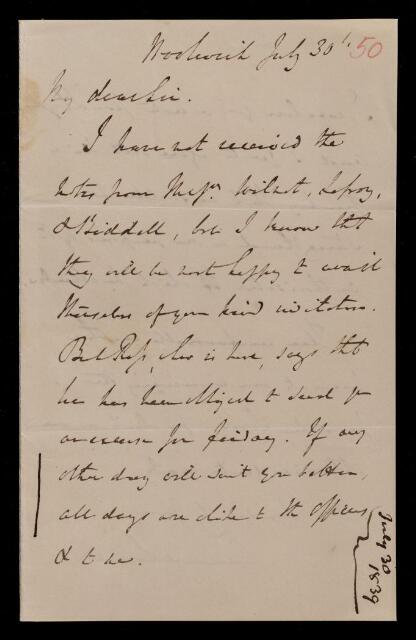 Woolwich July 30th 50
My dear Sir.
I have not received the
notes from Messrs. Wilmot, Lefroy,
& Riddell, but I know that
they will be most happy to avail
themselves of your kind invitation.
But Ross, who is here, says that
he has been obliged to send you
an excuse for friday. If any
other day will suit you better,
all days are alike to the officers
& to me.
July 30
1839